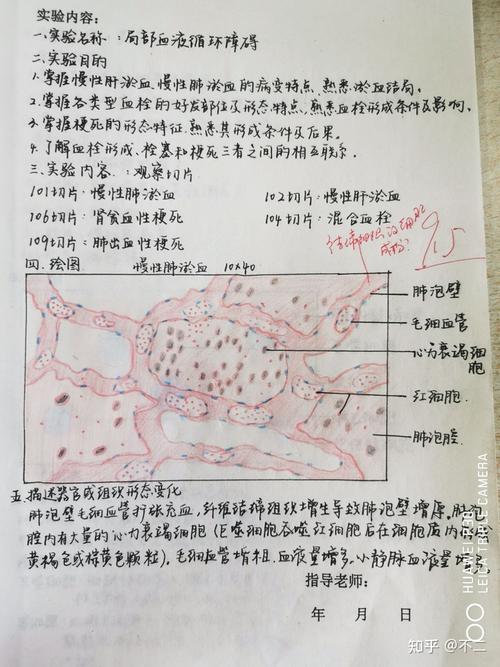 实验内容:
一.实验名称:局部血液循环障碍
二.实验目的
1.掌握慢性肝淤血、慢性肺淤血的病变特点,熟悉淤血结局。
2.掌握各类型血栓的好发部位及形态特点,熟悉血栓形成条件及影响。
3.掌握梗死的形态特征,熟悉其形成条件及后果。
4.了解血栓形成、栓塞和梗死三者之间的相互联系。
三.实验内容:观察切片
101切片:慢性肺淤血 102切片:慢性肝淤血
106切片:肾贫血性梗死 104切片:混合血栓
109切片:肺出血性梗死
结缔组织 成份?
95
四.绘图 慢性肺淤血 10×40
肺泡壁
毛细血管
心力衰竭细胞
红细胞.
肺泡腔.
五.描述器官或组织形态变化
肺泡壁毛细血管扩张充血,纤维结缔组织增生导致肺泡壁增厚,肺泡
腔内有大量的心力衰竭细胞(巨噬细胞吞噬红细胞后在细胞质内
黄褐色或棕黄色颗粒),毛细血管增粗,血液量增多,小静脉血液量增
指导老师:
年 月 日
HUAWEI
LEICA TRIPLE CAMERA
知乎 @不二